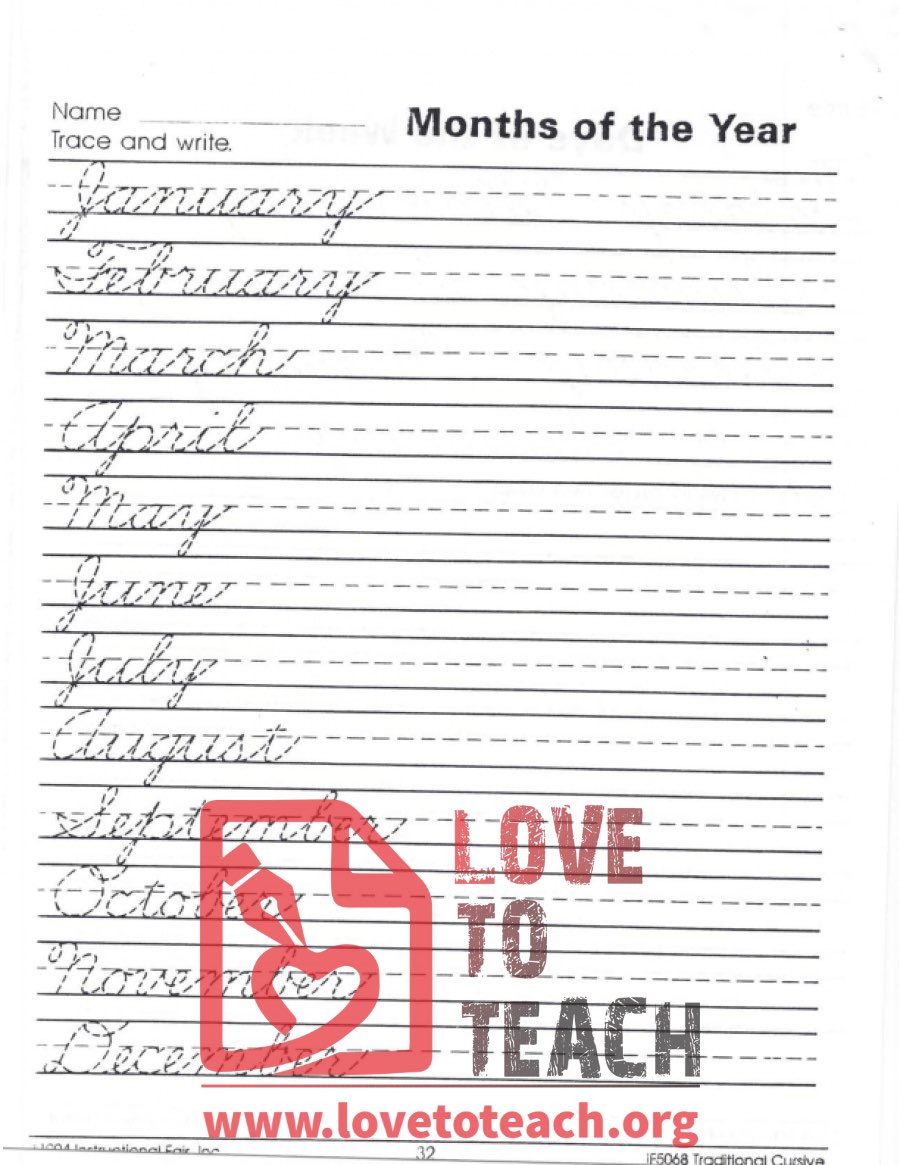 Name
Months of the Year
Trace and write.
January
February
March
April
May
June
July
August
September
October
November
December
LOVE
TO
TEACH
www.lovetoteach.org
1994 Instructional Fair, Inc.
32
IF5068 Traditional Cursive